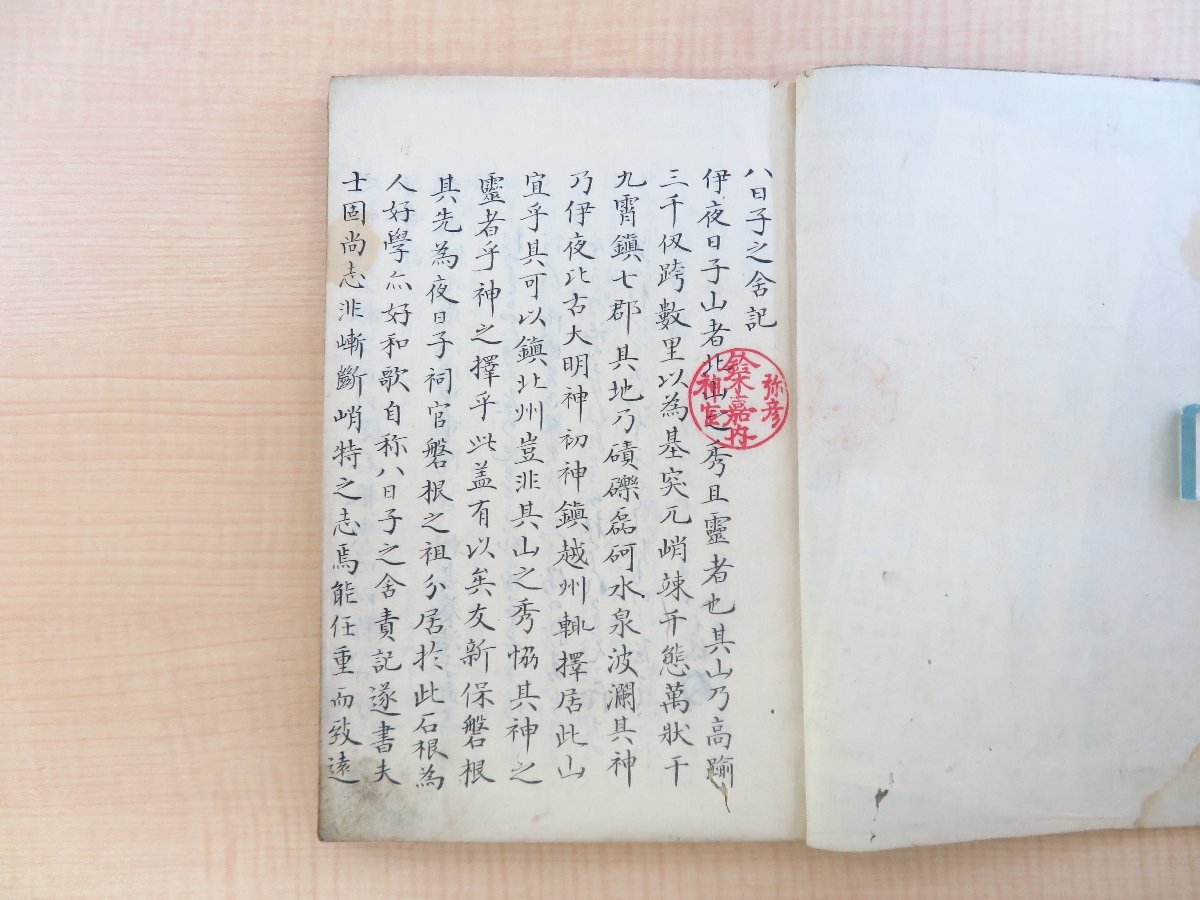 八日子之舍記
伊夜日子山者北山之秀且靈者也其山乃高踰
三千仭跨數里以為基突兀峭竦千態萬狀干
九霄鎮七郡其地乃磧礫磊砢水泉波瀾其神
乃伊夜比古大明神初神鎮越州輙擇居此山
宜乎其可以鎮北州豈非其山之秀恊其神之
靈者乎神之擇乎此盖有以矣友新保磐根
其先為夜日子祠官磐根之祖分居於此石根為
人好學亦好和歌自称八日子之舍責記遂書夫
士固尚志非嶄斷峭特之志焉能任重而致遠
弥彦
鈴木嘉内
祠官